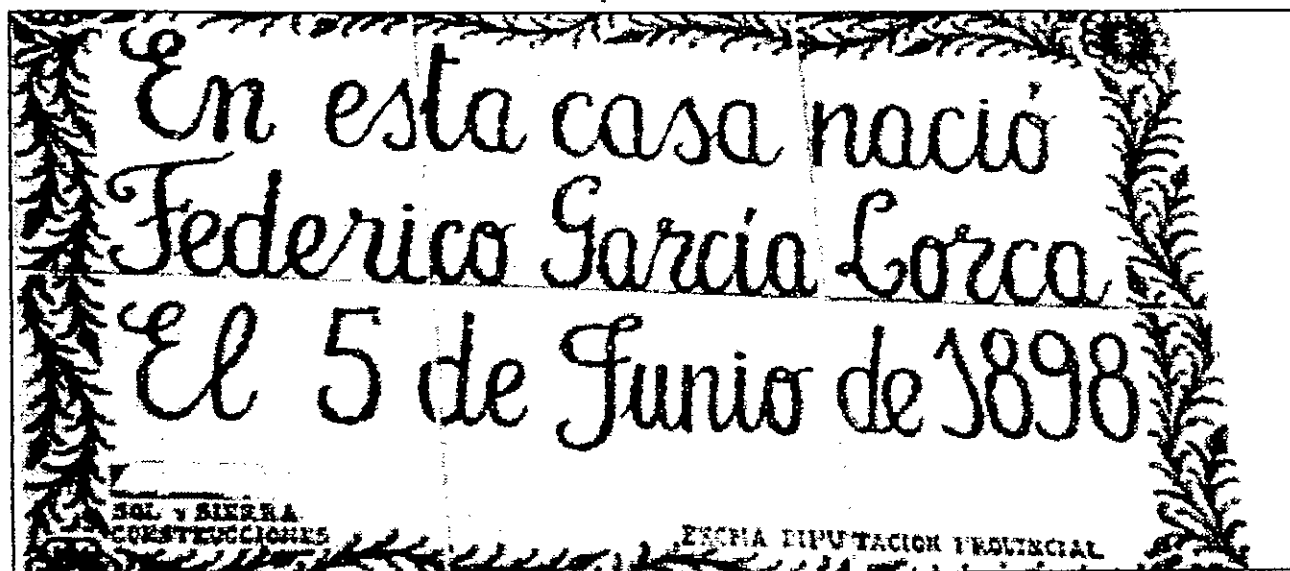 En esta casa nació
Federico García Lorca
El 5 de Junio de 1898
SOL Y SIERRA
CONSTRUCCIONES
EXCMA DIPUTACION PROVINCIAL